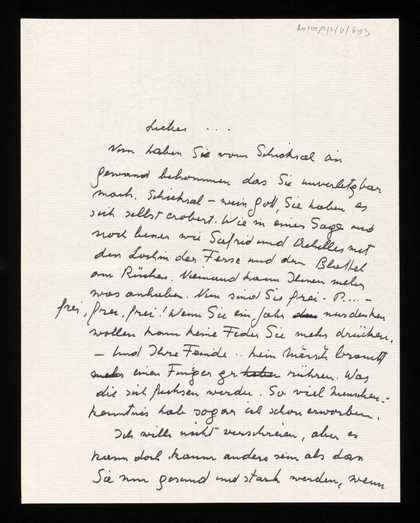 Lieber ...
Nun haben Sie vom Schicksal ein
gewand bekommen das Sie unverletzbar
macht. Schicksal – mein gott, Sie haben es
sich selbst erobert. Wie in einer Sage und
noch besser wie Siefrid und Achelles mit
den Loch in der Ferse und dem Blattel
am Rücken. Niemand kann Ihnen mehr
was anhaben. Nun sind Sie frei. P.... –
frei, frei, frei! Wenn Sie ein Jahr nur denken
wollen kann keine Feder Sie mehr drücken.
– und Ihre Feinde .. kein Mensch braucht
einen Finger zu rühren. Was
die sich fuchsen werden. So viel Menschen-
kenntnis hab sogar ich schon erworben.
Ich will's nicht verschreien, aber es
kann doch kaum anders sein als dass
Sie nun gesund und stark werden, wenn